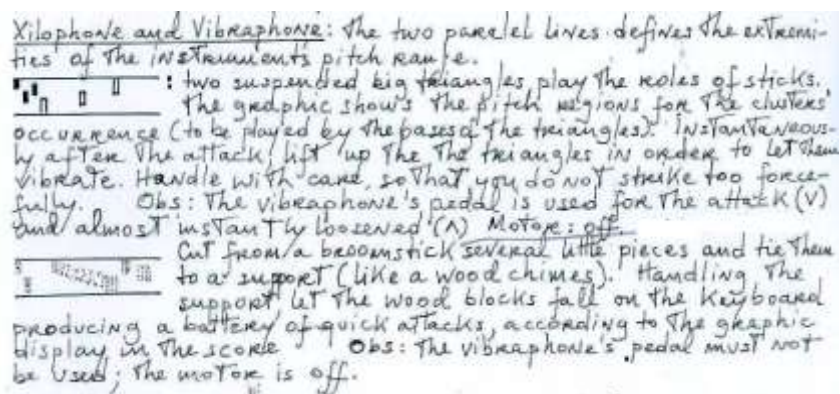 Xilophone and Vibraphone: The two parelel lines defines the extremi-
ties of the instrument's pitch range.
: two suspended big triangles play the roles of sticks.
The graphic shows the pitch regions for the clusters'
occurrence (to be played by the bases of the triangles). Instantaneous-
ly after the attack, lift up the the triangles in order to let them
vibrate. Handle with care, so that you do not strike too force-
fully. Obs: the vibraphone's pedal is used for the attack (V)
and almost instantly loosened (Λ) Motor: off.
Cut from a broomstick several little pieces and tie them
to a support (like a wood chimes). Handling the
support, let the wood blocks fall on the keyboard
producing a battery of quick attacks, according to the graphic
display in the score Obs: the vibraphone's pedal must not
be used; the motor is off.